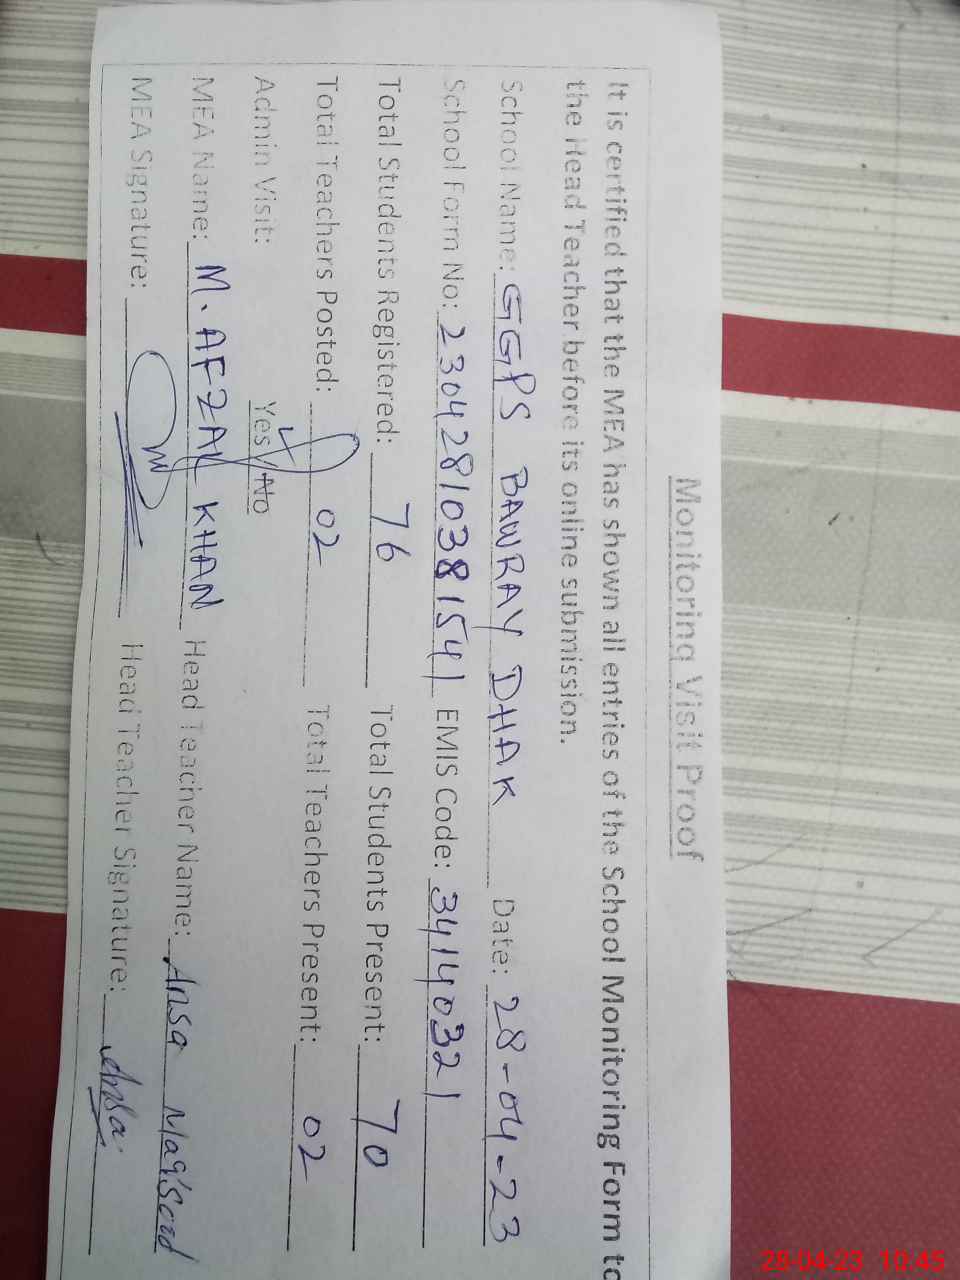 Monitoring Visit Proof
It is certified that the MEA has shown all entries of the School Monitoring Form to
the Head Teacher before its online submission.
School Name: GGPS BAWRAY DHAK Date: 28-04-23
School Form No: 23042810381541 EMIS Code: 34140321
Total Students Registered: 76 Total Students Present: 70
Total Teachers Posted: 02 Total Teachers Present: 02
Admin Visit: Yes / No
MEA Name: M. AFZAL KHAN Head Teacher Name: Ansa Maqsood
MEA Signature: Head Teacher Signature: Ansa
28-04-23 10:45